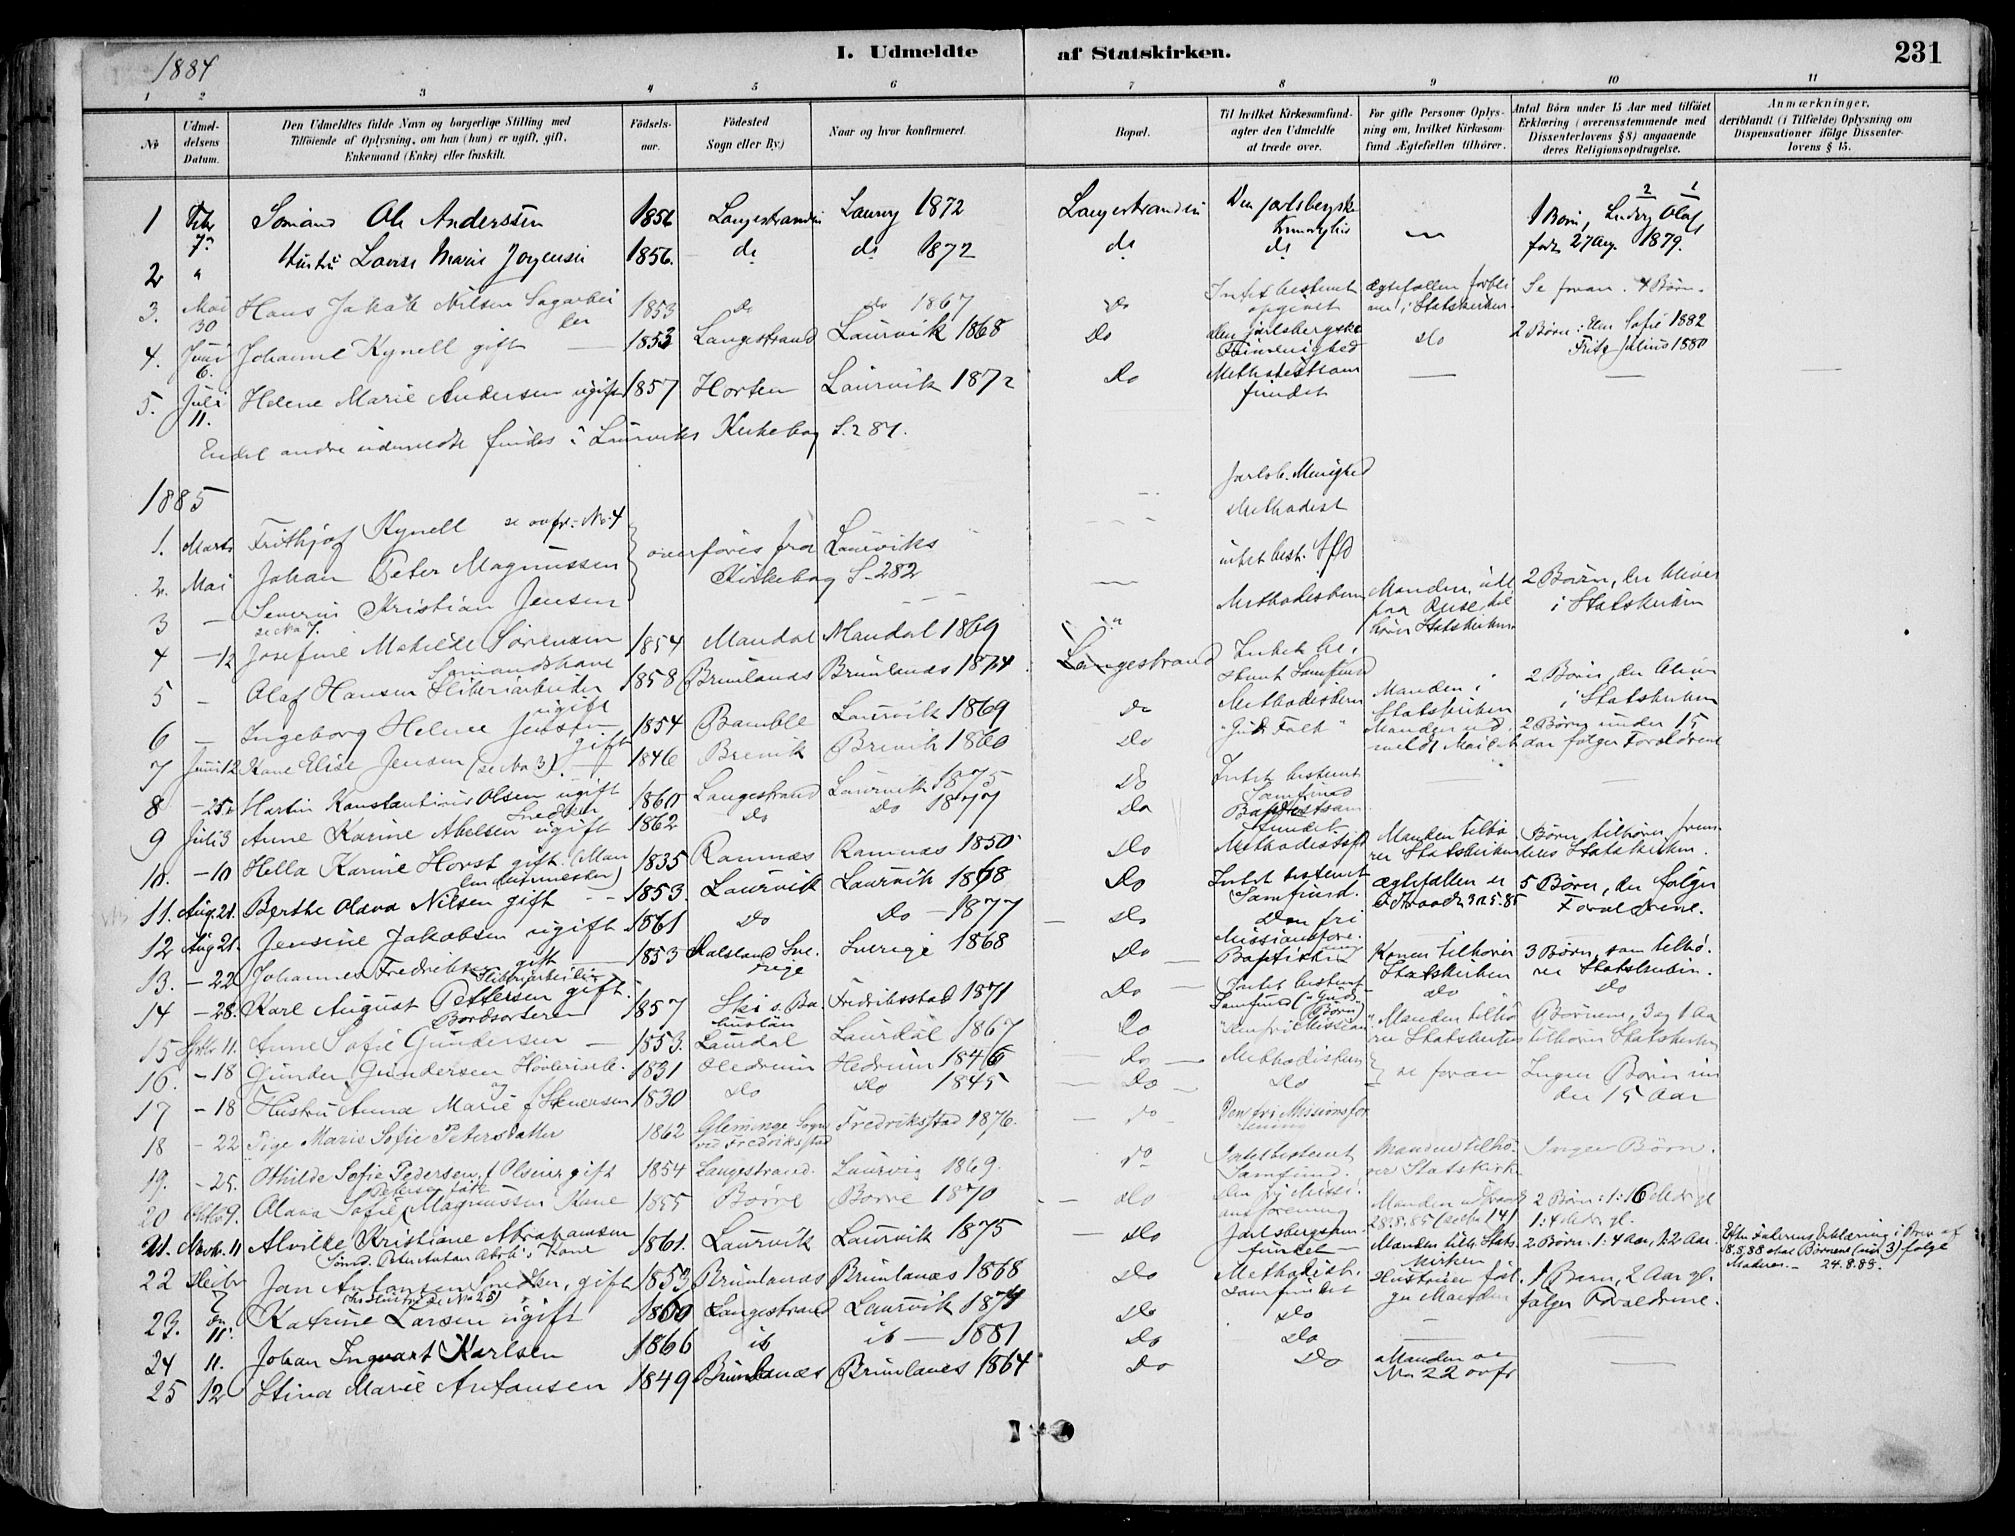 1884
I. Udmeldte af Statskirken. 231
1 2 3 4 5 6 7 8 9 10 11
No
Udmel-
delsens
Datum.
Den Udmeldtes fulde Navn og borgerlige Stilling med
Tilføiende af Oplysning, om han (hun) er ugift, gift,
Enkemand (Enke) eller fraskilt.
Fødsels-
aar.
Fødested
Sogn eller By)
Naar og hvor konfirmeret.
Bopæl.
Til hvilket Kirkesamfund-
agter den Udmeldte
at træde over.
For gifte Personer Oplys-
ning om, hvilket Kirkesam-
fund Ægtefællen tilhører.
Antal Børn under 15 Aar med tilføiet
Erklæring (overensstemmende med
Dissenterlovens § 8) angaaende
deres Religionsopdragelse.
Anmærkninger,
deriblandt (i Tilfælde) Oplysning om
Dispensationer ifølge Dissenter-
lovens § 15.
1 Febr 7 Sømand Ole Anderssen 1856 Langestranden Laurvg 1872 Langestranden Den jarlsbergske 1 Barn, Ludvig Olaf
født 27 Aug. 1879.
2 " Hustru Lovise Marie Jørgensen 1856. do do 1872 do do
3. Mai 30 Hans Jakob Nilsen Sagarbei
der 1853 do do 1867 Do Intet bestemt
opgivet Ægtefællen forbli
ver i Statskirken Se foran. 4 Børn.
4. Juni 6. Johanne Kynell gift 1853 Langestrand Laurvik 1868 Do den jarlsbergske
Frimenighed Do 2 Børn: Elen Sofie 1882
Fritz Julius 1880
5. Juli 11. Helene Marie Andersen ugift 1857 Horten Laurvik 1872 Do Methodistsam
fundet
Endel andre udmeldte findes i Laurviks Kirkebog S. 281.
1885
1. Marts Frithjof Kynell se ovfr. No 4 Jarlsb. Menighed
2. Mai Johan Peter Magnussen overføres fra Laurviks Methodist
3 — Severin Kristian Jensen Kirkebog S. 282 intet best. Sfd
se No 7.
4 — 12 Josefine Mathilde Sørensen
Sømandskone 1854 Mandal Mandal 1869 Methodistern Manden, ude
paa Reise til
hører Statskirken 2 Børn, der bliver
i Statskirken
5 - Olaf Hansen Sliberiarbeider
ugift 1858 Brunlanæs Brunlanæs 1874 Langestrand Intet be-
stemt Samfund
6 — Ingeborg Helene Jensen
gift 1854 Bamble Laurvik 1869 do Methodistern Manden i
Statskirken 2 Børn, der bliver
i Statskirken
7 Juni 12 Kone Elise Jensen (se No 3) 1846 Brevik Brevik 1860 Do "Guds Folk" Manden ud
meldt Mai 2 Børn under 15
aar følger Forældrene
8 -25. Martin Konstantinius Olsen ugift
Snedker 1860 Langestrand Laurvik 1875 Do Intet bestemt
Samfund
9 Juli 3 Anne Karine Abelsen ugift 1862 Do Do 1877 Do Baptistsam
fundet
10. -10 Hella Karine Horst gift (Man 1835 Ramnæs Ramnæs 1850 Do Methodistsfd Manden tilhø
rer Statskirken Børn tilhører frem
deles Statskirken.
11. Aug. 21. Berthe Olava Nilsen gift 1853. Laurvik Laurvik 1868 Do Intet bestemt
Samfund. Ægtefællen er 5 Børn, der følger
Forældrene.
12 Aug 21. Jensine Jakobsen ugift 1861 Do Do — 1877 Do Den fri
Missionsfore-
ning
13. -22 Johannes Fredriksen gift
Sliberiarbeider 1853 Dalsland Sve-
rige Sverige 1868 Do Baptistern Konen tilhører
Statskirken 3 Børn, som tilhø-
rer Statskirken.
14 -28. Karl August Pettersen gift.
Bordsorterer 1857 Ski s. Ba
huslän Fredriksstad 1871 Do Intet bestemt
Samfund ("Guds
Børn") do do
15 Sptbr 11. Anne Sofie Gundersen — 1853. Laurdal Laurdal 1867 Do "den fri Mission" Manden tilhø
rer Statskirken Børnene, 3 og 1 Aar
tilhører Statskirken
16. -18 Gunder Gundersen Høvleriarb. 1831 Hedrum Hedrum 1846 Do Methodistern se foran Ingen Børn un
der 15 Aar
17 -18 Hustru Anna Marie f. Skuersen 1830 Do Do 1845 Do Do
18 -22 Pige Maria Sofie Petersdatter 1862 Gleminge Sogn
ved Fredriksstad Fredriksstad 1876. do Den fri Missionsfor
ening
19. -25. Othilde Sofie Pedersen f. Olsen gift 1854 Langestrand. Laurvig 1869. do Intet bestemt
Samfund. Manden tilhø-
rer Statskirk. Ingen Børn.
20 Oktbr 9. Olava Sofie Magnussen Kone 1855 Borre Borre 1870 do Den fri Missi-
onsforening Manden udtraadt
28.8.85 (se No 14) 2 Børn: 1: 16 Mdr. gl
1: 4 Mdr. gl.
21. Novbr. 11 Alvilde Kristiane Abrahamsen
Sømd. Peter Anton Abrh.'s Kone 1861. Laurvik Laurvik 1875 Do Jarlsbergsam-
fundet Manden tilh. Stats-
kirken 2 Børn: 1: 4 Aar, 1: 2 Aar. Efter Faderens Erklæring i Brev af
18.5.88 skal Børnene (nu 3) følge
Moderen. — 24.8.88.
22 Deibr 7 Jan Antonsen Snedker, gift
(hs Hustru se No 25) 1853 Brunlanæs Brunlanæs 1868 Do Methodist-
samfundet Hustruen føl-
ger Manden 1 Barn, 2 Aar gl.
følger Forældrene.
23. 11. Katrine Larsen ugift 1860 Langestrand Laurvik 1874 Do Do
24 11. Johan Ingvart Karlsen 1866 ib ib — 1881 Do Do
25 12 Stina Marie Antonsen 1849 Brunlanæs Brunlanes 1864 Do Do Manden se
No 22 ovfr